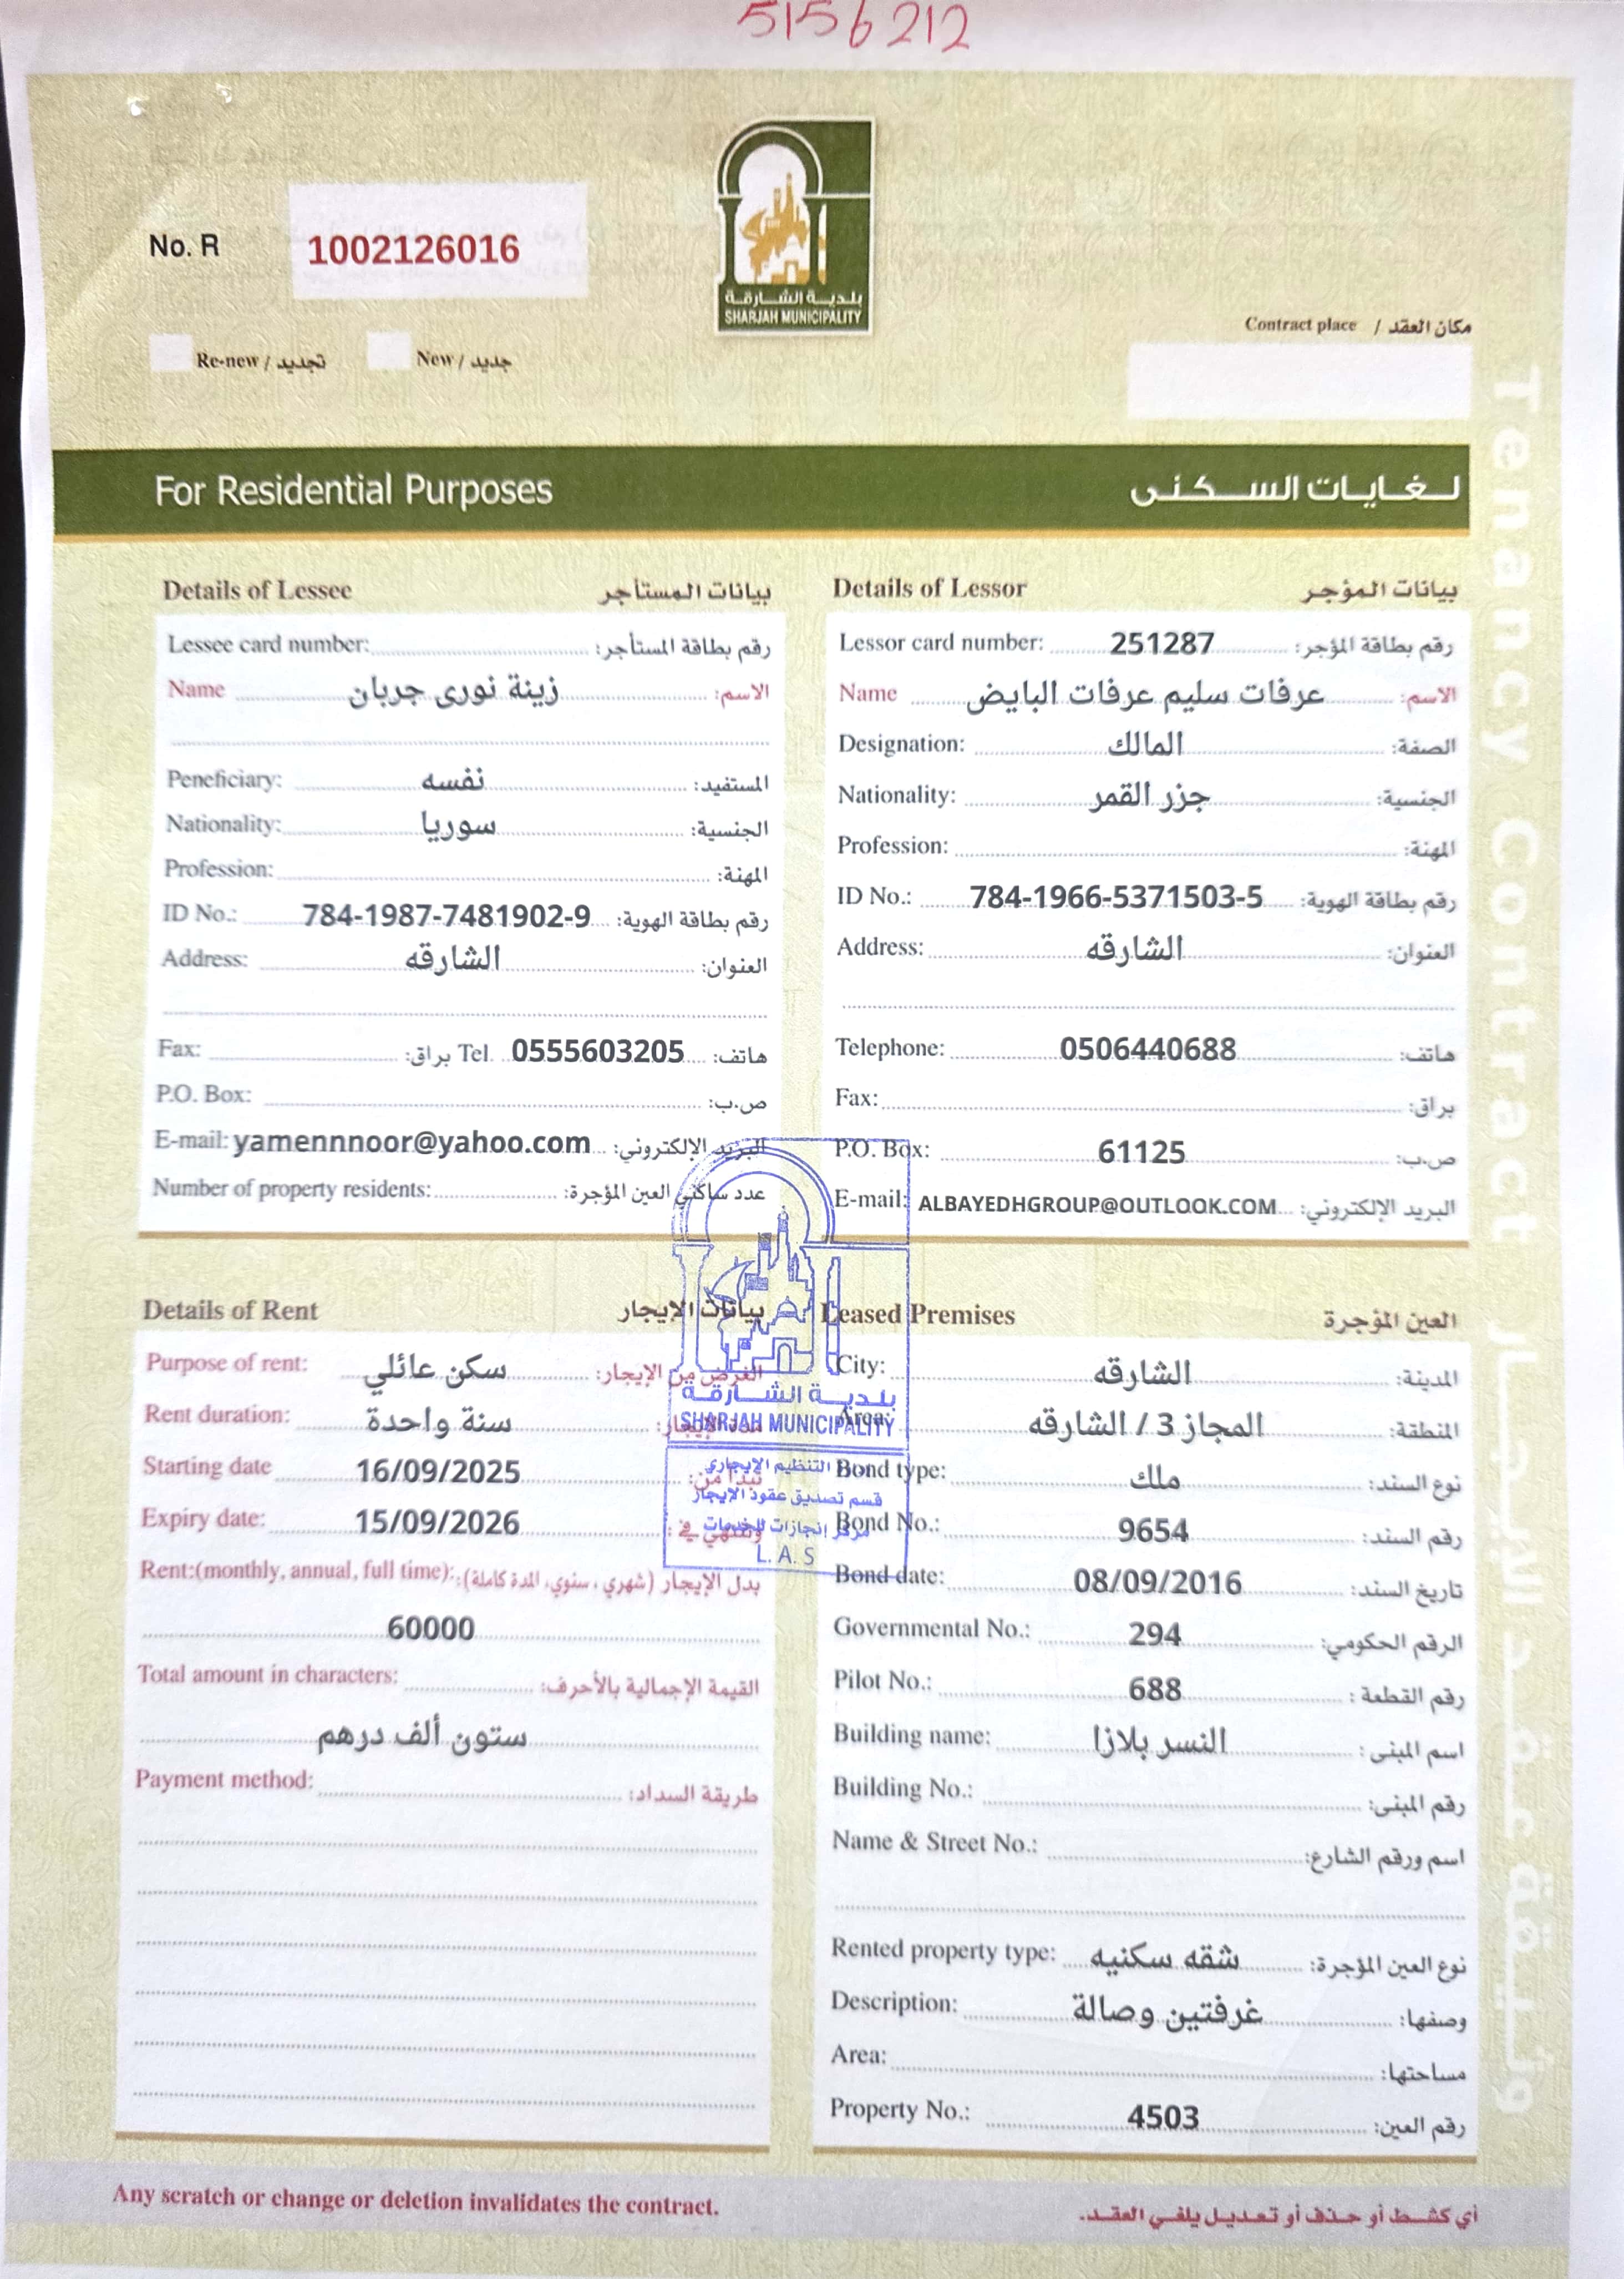 5156212
No. R 1002126016
بلدية الشارقة
SHARJAH MUNICIPALITY
Re-new / تجديد New / جديد
Contract place / مكان العقد
For Residential Purposes لغايات السكنى
Tenancy Contract وثيقة عقد الايجار
Details of Lessee بيانات المستأجر
Lessee card number: رقم بطاقة المستأجر:
Name زينة نورى جربان الاسم:
Peneficiary: نفسه المستفيد:
Nationality: سوريا الجنسية:
Profession: المهنة:
ID No.: 784-1987-7481902-9 رقم بطاقة الهوية:
Address: الشارقه العنوان:
Fax: براق: Tel. 0555603205 هاتف:
P.O. Box: ص.ب:
E-mail: yamennnoor@yahoo.com البريد الإلكتروني:
Number of property residents: عدد ساكني العين المؤجرة:
Details of Lessor بيانات المؤجر
Lessor card number: 251287 رقم بطاقة المؤجر:
Name عرفات سليم عرفات البايض الاسم:
Designation: المالك الصفة:
Nationality: جزر القمر الجنسية:
Profession: المهنة:
ID No.: 784-1966-5371503-5 رقم بطاقة الهوية:
Address: الشارقه العنوان:
Telephone: 0506440688 هاتف:
Fax: براق:
P.O. Box: 61125 ص.ب:
E-mail: ALBAYEDHGROUP@OUTLOOK.COM البريد الإلكتروني:
Details of Rent بيانات الإيجار
Purpose of rent: سكن عائلي الغرض من الإيجار:
Rent duration: سنة واحدة مدة الإيجار:
Starting date 16/09/2025 تبدأ من:
Expiry date: 15/09/2026 وتنتهي في:
Rent:(monthly, annual, full time): بدل الإيجار (شهري، سنوي، المدة كاملة):
60000
Total amount in characters: القيمة الإجمالية بالأحرف:
ستون ألف درهم
Payment method: طريقة السداد:
بلدية الشارقة
SHARJAH MUNICIPALITY
التنظيم الإيجاري
قسم تصديق عقود الإيجار
مركز إنجازات للخدمات
L. A. S
Leased Premises العين المؤجرة
City: الشارقه المدينة:
Area: المجاز 3 / الشارقه المنطقة:
Bond type: ملك نوع السند:
Bond No.: 9654 رقم السند:
Bond date: 08/09/2016 تاريخ السند:
Governmental No.: 294 الرقم الحكومي:
Pilot No.: 688 رقم القطعة :
Building name: النسر بلازا اسم المبنى :
Building No.: رقم المبنى:
Name & Street No.: اسم ورقم الشارع:
Rented property type: شقه سكنيه نوع العين المؤجرة:
Description: غرفتين وصالة وصفها:
Area: مساحتها:
Property No.: 4503 رقم العين:
Any scratch or change or deletion invalidates the contract. أي كشط أو حذف أو تعديل يلغي العقد.